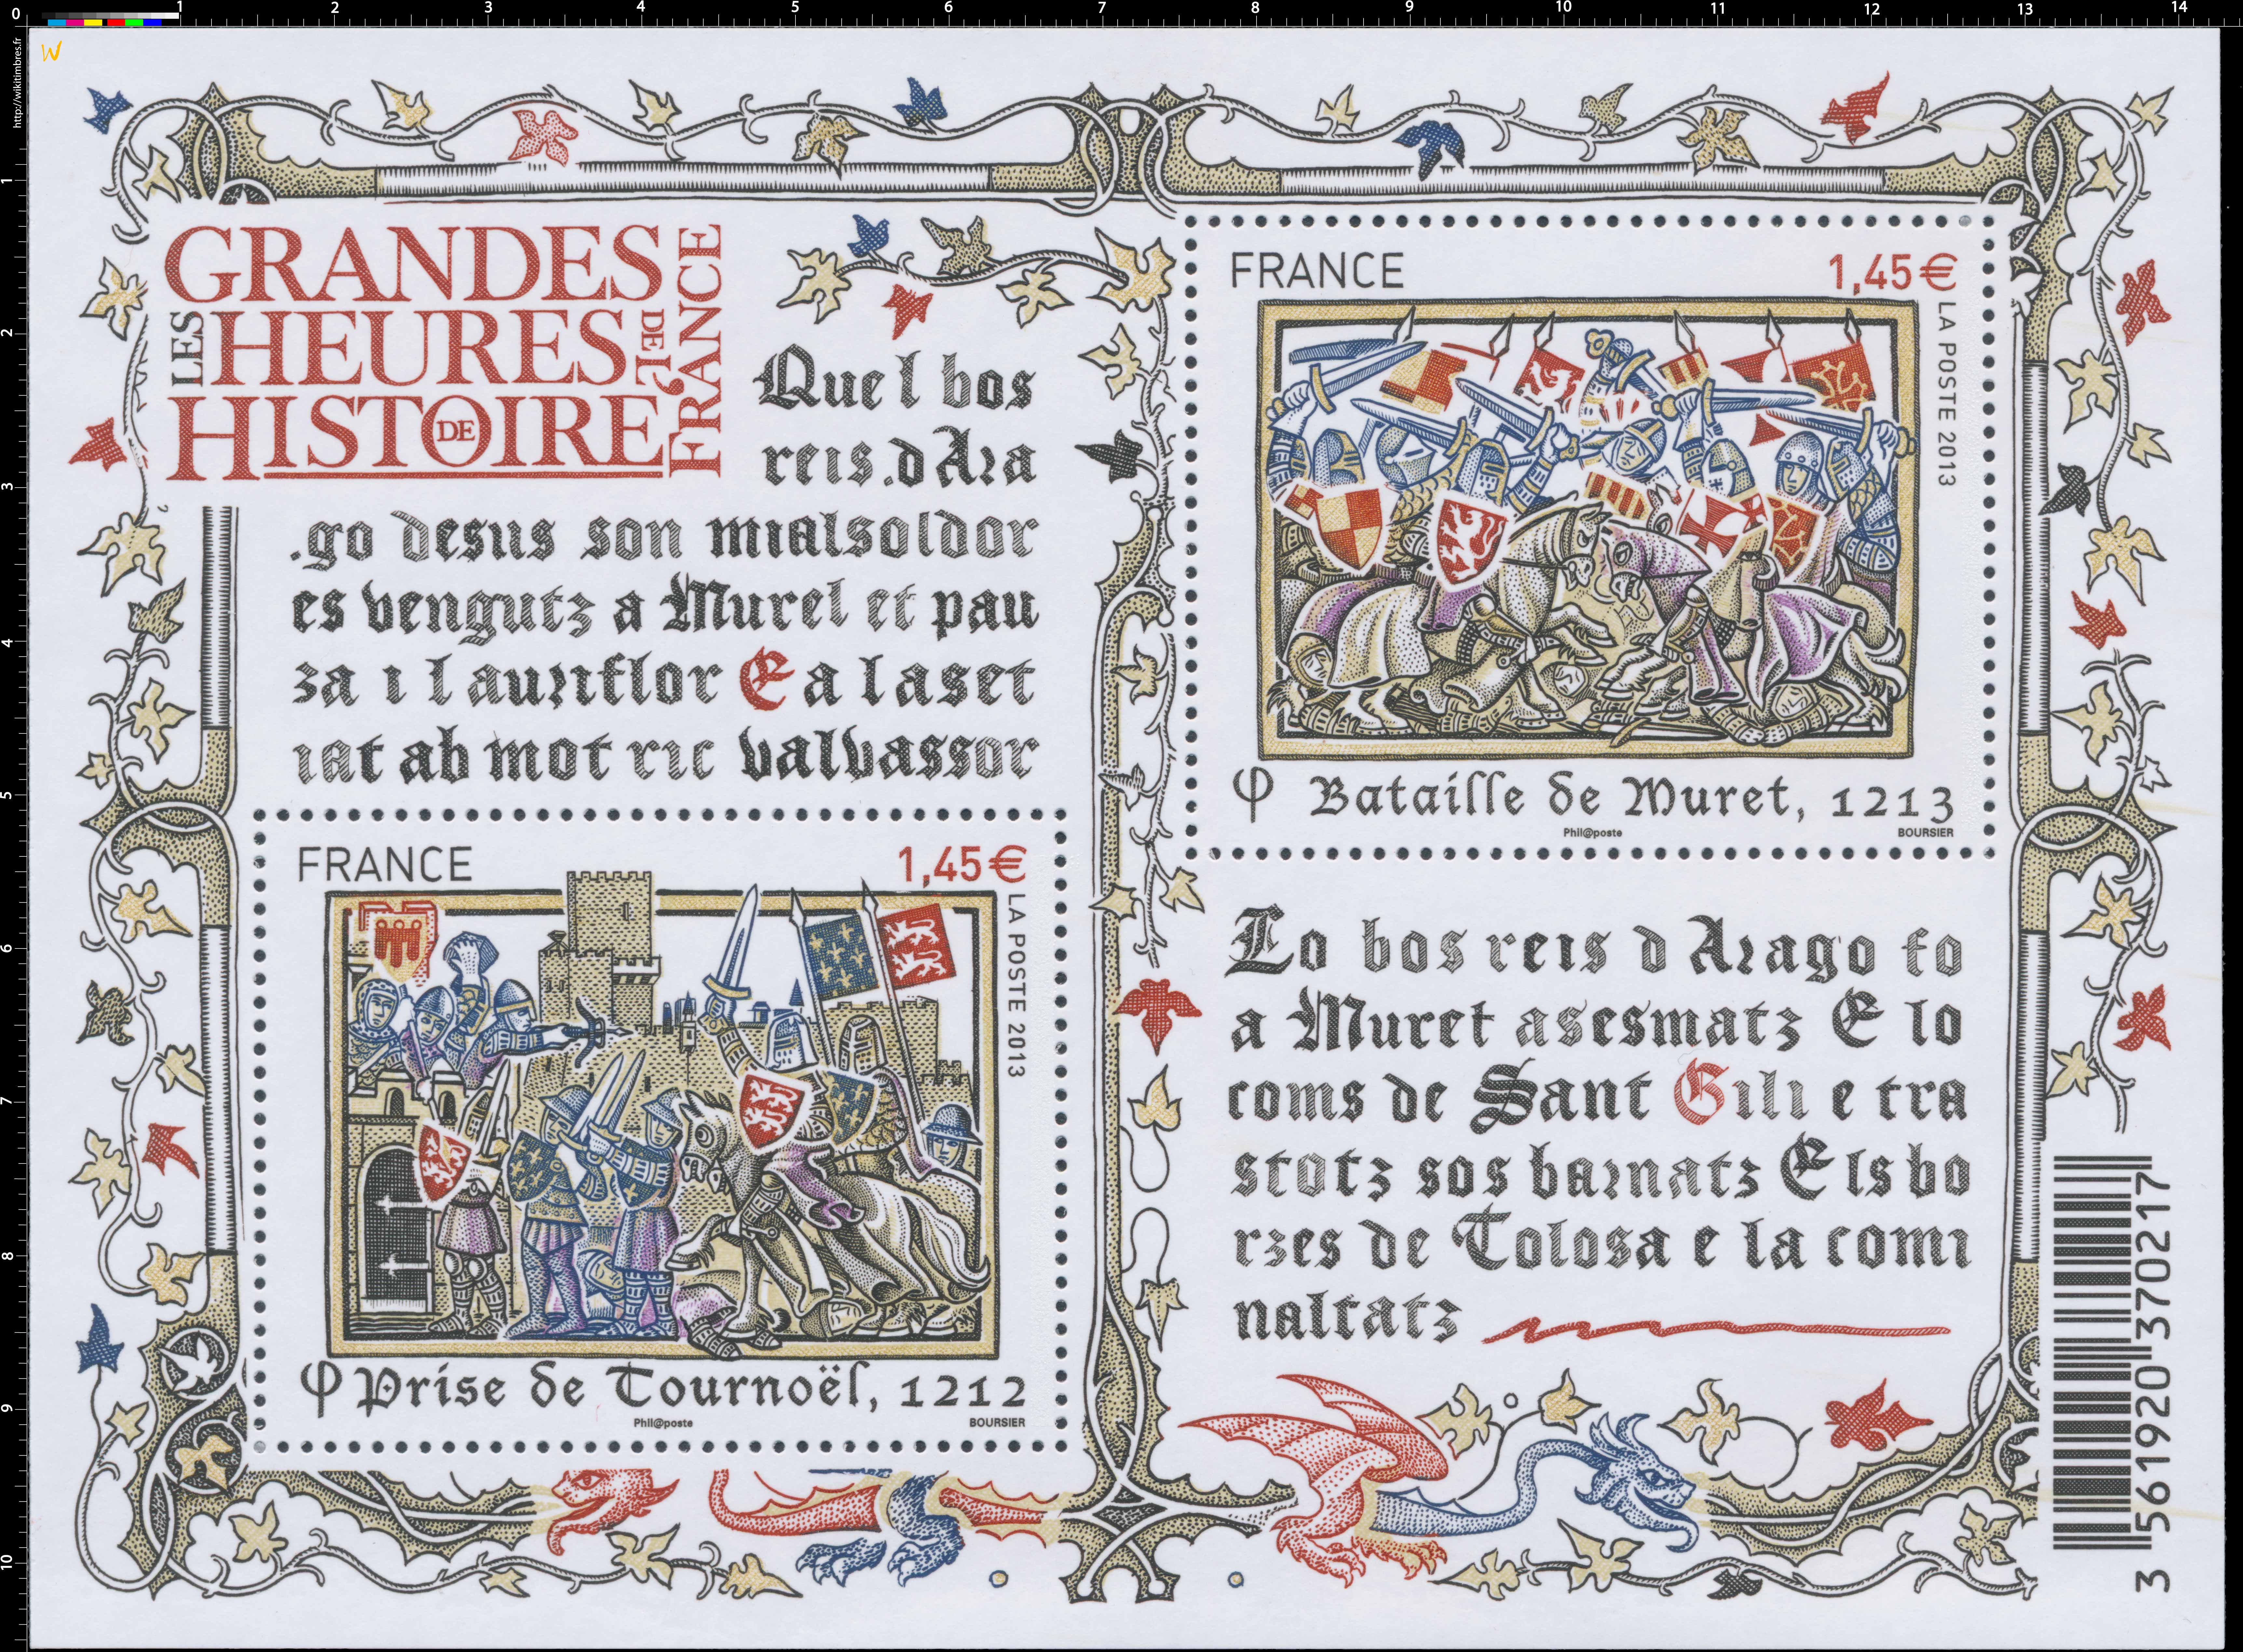 0 1 2 3 4 5 6 7 8 9 10 11 12 13 14
http://wikitimbres.fr
W
1
2
3
4
5
6
7
8
9
10
LES GRANDES
HEURES DE L'
HISTOIRE DE
FRANCE
Que l bos
reis.d Ara
.go desus son mialsoldor
es vengutz a Murel et pau
za i l auriflor E a l aset
iat ab mot ric valvassor
FRANCE 1,45€
LA POSTE 2013
φ Bataille de Muret, 1213
Phil@poste BOURSIER
FRANCE 1,45€
LA POSTE 2013
φ Prise de Tournoël, 1212
Phil@poste BOURSIER
Lo bos reis d Arago fo
a Muret asesmatz E lo
coms de Sant Gili e tra
stotz sos barnatz Els bo
rzes de Tolosa e la comi
naltatz
3 561920 370217